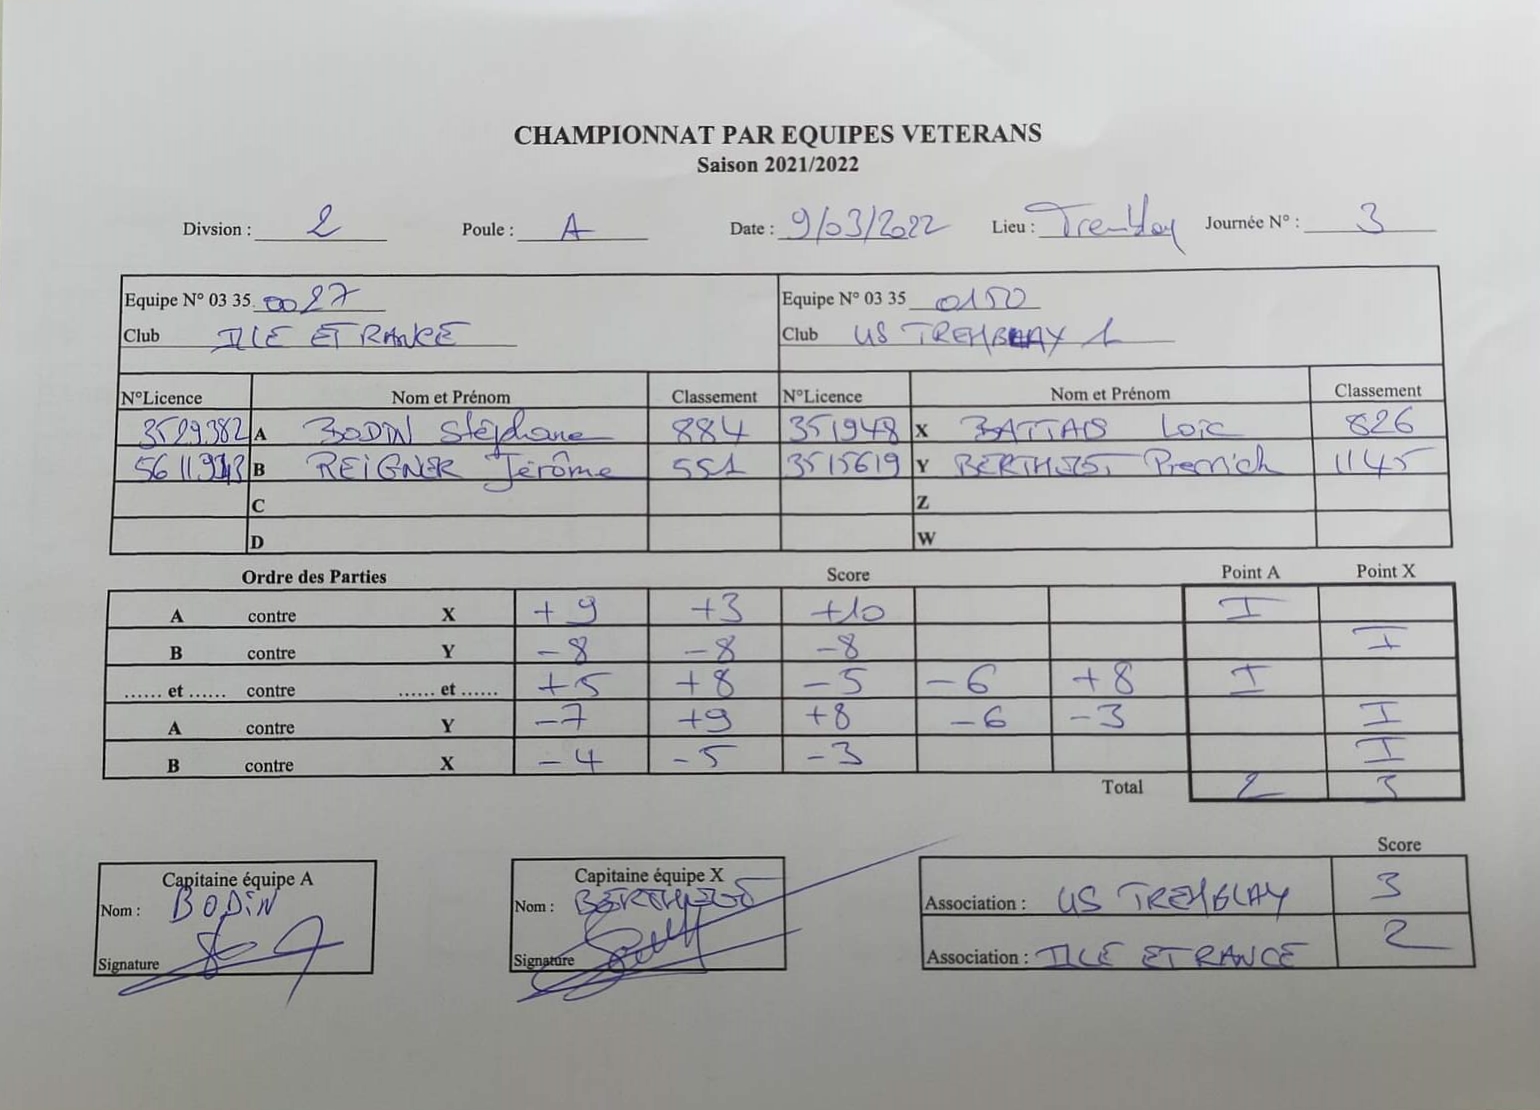 CHAMPIONNAT PAR EQUIPES VETERANS
Saison 2021/2022
Divsion : 2 Poule : A Date : 9/03/2022 Lieu : Tremblay Journée N° : 3
Equipe N° 03 35 0027 Equipe N° 03 35 0150
Club ILLE ET RANCE Club US TREMBLAY 1
N°Licence Nom et Prénom Classement N°Licence Nom et Prénom Classement
3529382 A BODIN Stéphane 884 351948 X BATTAIS Loïc 826
B REIGNER Jérôme 551 3515619 Y 1145
C Z
D W
Ordre des Parties Score Point A Point X
A contre X +9 +3 +10 I
B contre Y -8 -8 -8 I
...... et ...... contre ...... et ...... +5 +8 -5 -6 +8 I
A contre Y -7 +9 +8 -6 -3 I
B contre X -4 -5 -3 I
Total 2 3
Score
Capitaine équipe A Capitaine équipe X
Nom : BODIN Nom : Association : US TREMBLAY 3
Signature Signature Association : ILLE ET RANCE 2